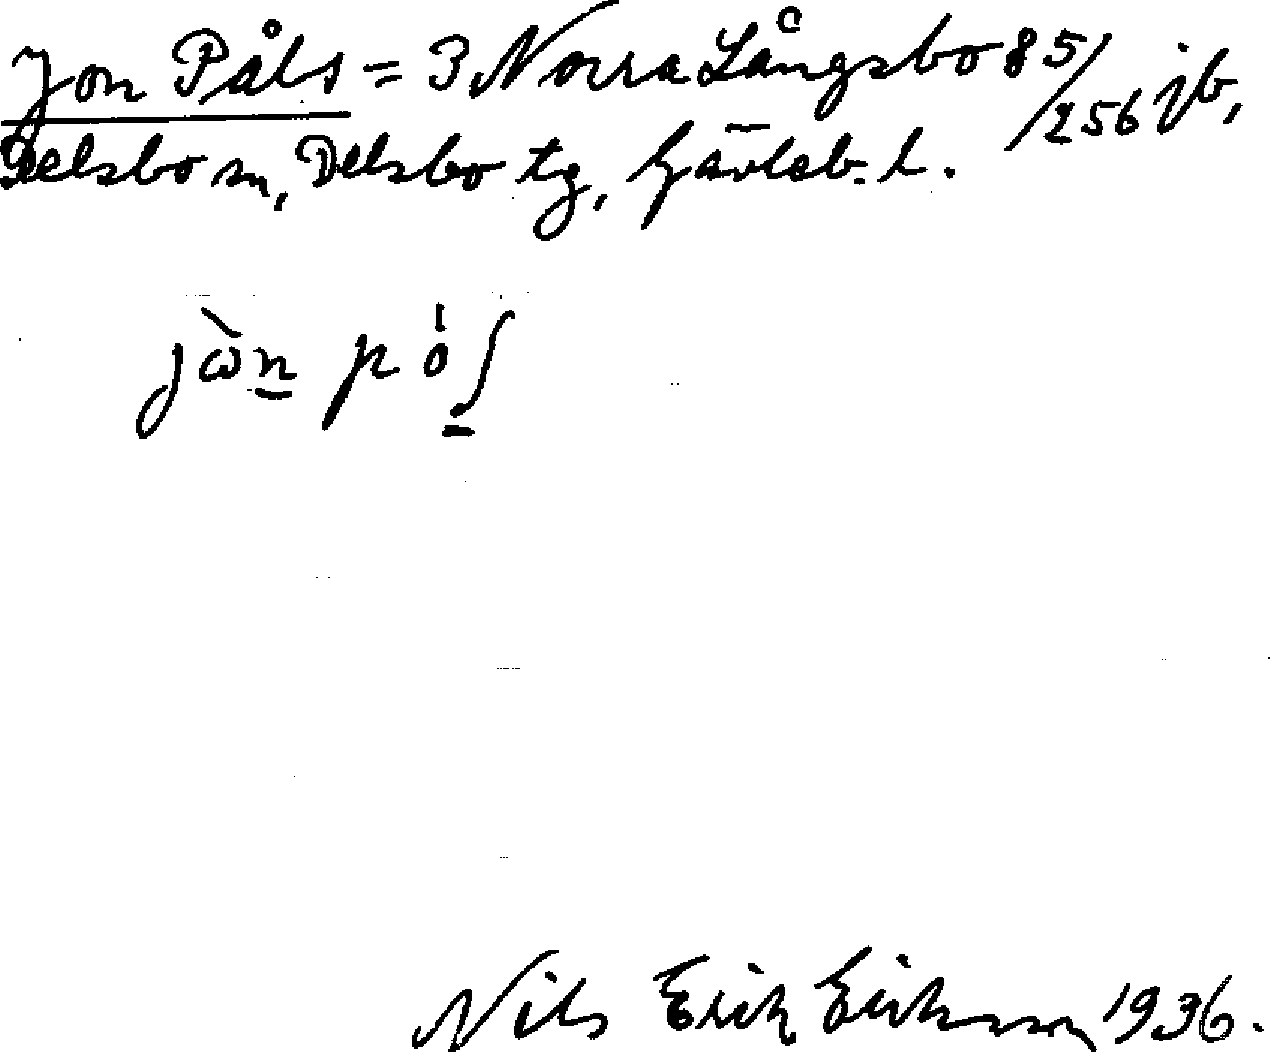 Jon Påls = 3 Norra Långsbo 85/256 jb,
Delsbo sn, Delsbo tg, Gävleb. l.
jὼn̲ pó̍ʃ̲
Nils Erik Eriksson 1936.